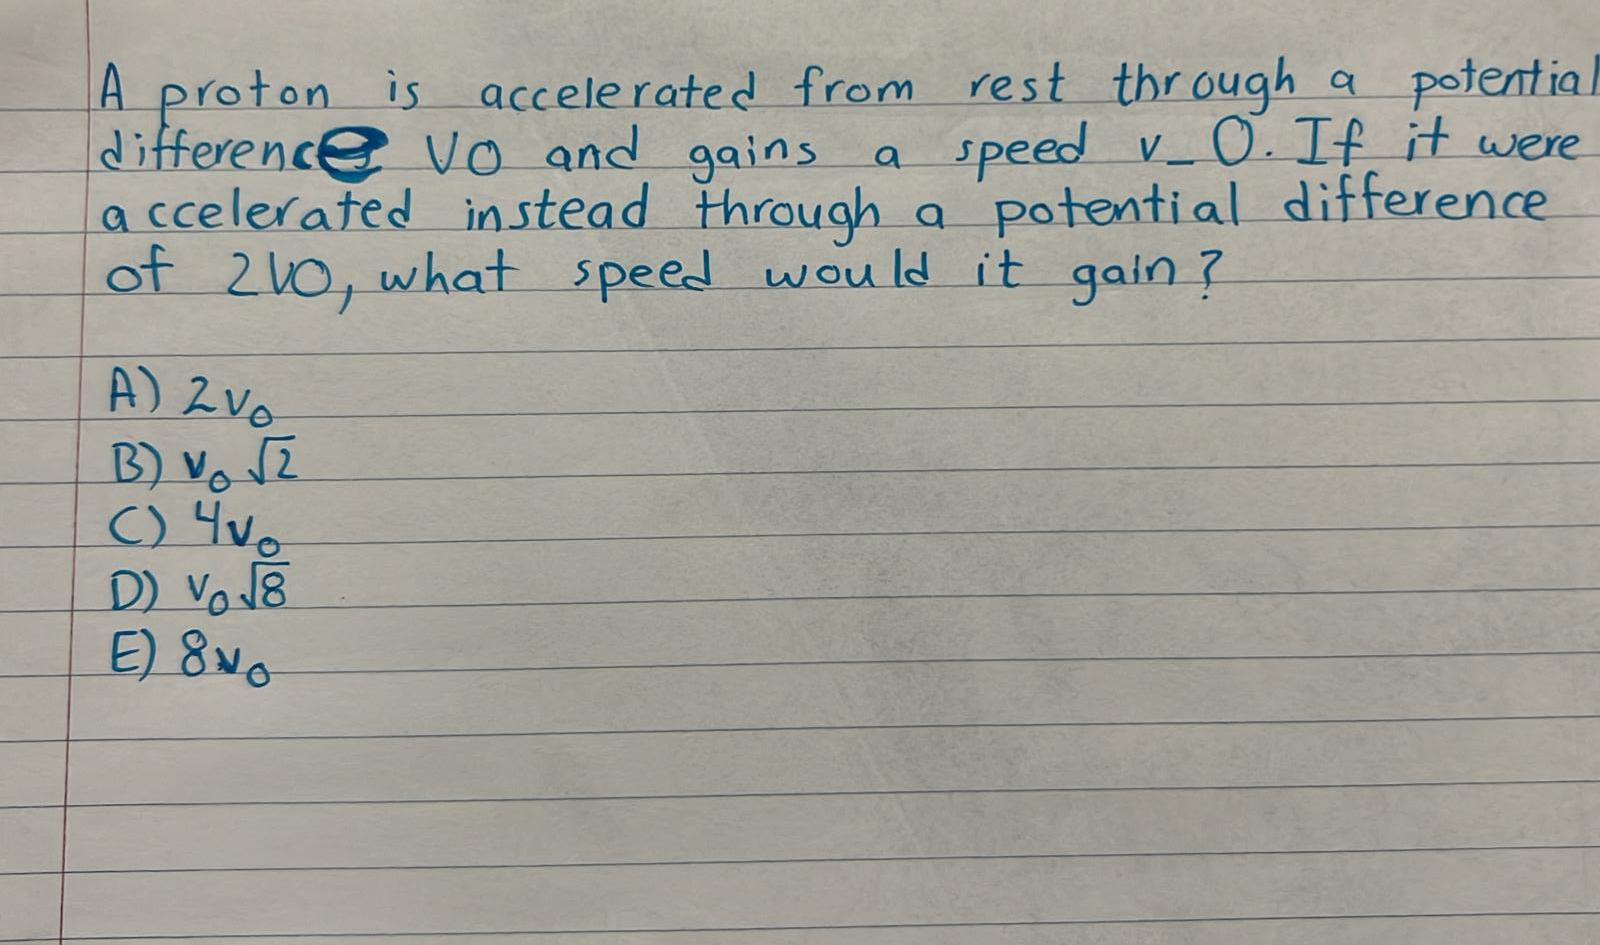 A proton is accelerated from rest through a potential
difference V0 and gains a speed v_0. If it were
accelerated instead through a potential difference
of 2V0, what speed would it gain?
A) 2v₀
B) v₀√2
C) 4v₀
D) v₀√8
E) 8v₀